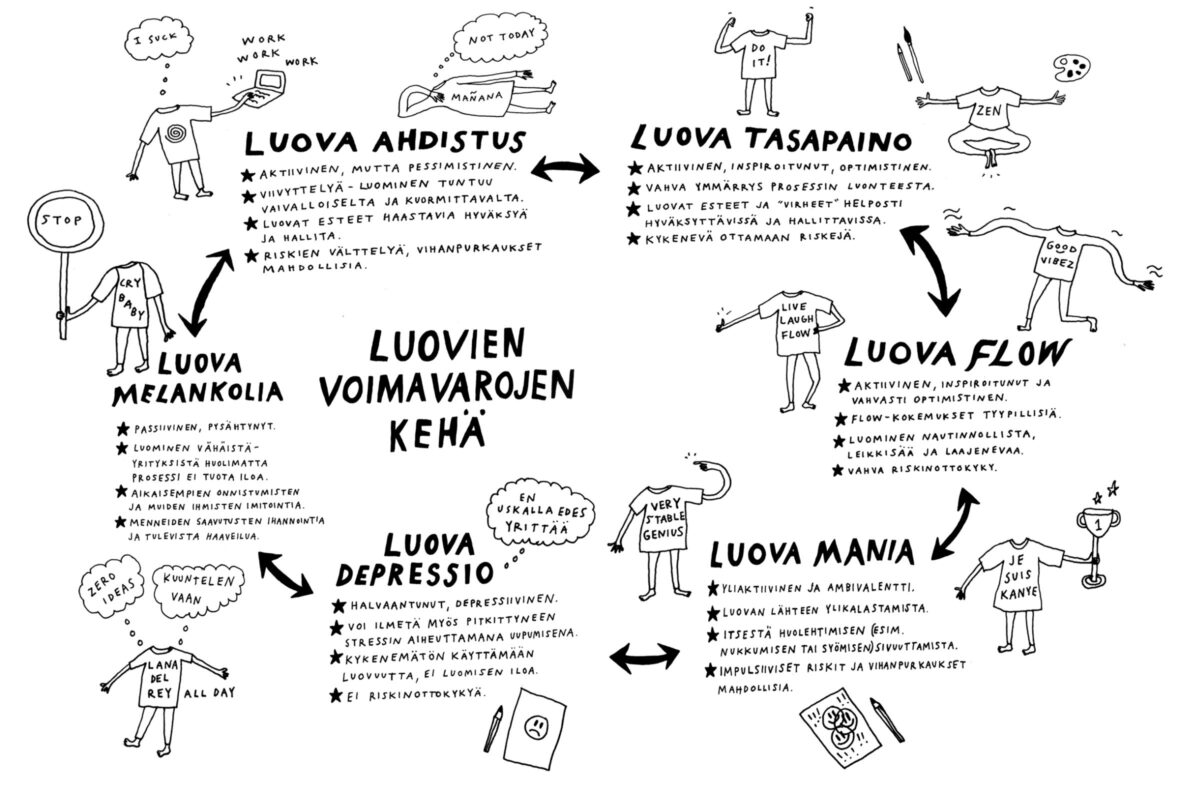 I SUCK
WORK
WORK
WORK
NOT TODAY
MAÑANA
LUOVA AHDISTUS
★ AKTIIVINEN, MUTTA PESSIMISTINEN.
★ VIIVYTTELYÄ - LUOMINEN TUNTUU
VAIVALLOISELTA JA KUORMITTAVALTA.
★ LUOVAT ESTEET HAASTAVIA HYVÄKSYÄ
JA HALLITA.
★ RISKIEN VÄLTTELYÄ, VIHANPURKAUKSET
MAHDOLLISIA.
DO
IT!
ZEN
LUOVA TASAPAINO
★ AKTIIVINEN, INSPIROITUNUT, OPTIMISTINEN.
★ VAHVA YMMÄRRYS PROSESSIN LUONTEESTA.
★ LUOVAT ESTEET JA "VIRHEET" HELPOSTI
HYVÄKSYTTÄVISSÄ JA HALLITTAVISSA.
★ KYKENEVÄ OTTAMAAN RISKEJÄ.
STOP
CRY
BABY
LUOVA
MELANKOLIA
★ PASSIIVINEN, PYSÄHTYNYT.
★ LUOMINEN VÄHÄISTÄ-
YRITYKSISTÄ HUOLIMATTA
PROSESSI EI TUOTA ILOA.
★ AIKAISEMPIEN ONNISTUMISTEN
JA MUIDEN IHMISTEN IMITOINTIA.
★ MENNEIDEN SAAVUTUSTEN IHANNOINTIA
JA TULEVISTA HAAVEILUA.
ZERO
IDEAS
KUUNTELEN
VAAN
LANA
DEL
REY
ALL DAY
LUOVIEN
VOIMAVAROJEN
KEHÄ
GOOD
VIBEZ
LIVE
LAUGH
FLOW
LUOVA FLOW
★ AKTIIVINEN, INSPIROITUNUT JA
VAHVASTI OPTIMISTINEN.
★ FLOW-KOKEMUKSET TYYPILLISIÄ.
★ LUOMINEN NAUTINNOLLISTA,
LEIKKISÄÄ JA LAAJENEVAA.
★ VAHVA RISKINOTTOKYKY.
EN
USKALLA EDES
YRITTÄÄ
LUOVA
DEPRESSIO
★ HALVAANTUNUT, DEPRESSIIVINEN.
★ VOI ILMETÄ MYÖS PITKITTYNEEN
STRESSIN AIHEUTTAMANA UUPUMISENA.
★ KYKENEMÄTÖN KÄYTTÄMÄÄN
LUOVUUTTA, EI LUOMISEN ILOA.
★ EI RISKINOTTOKYKYÄ.
VERY
STABLE
GENIUS
JE
SUIS
KANYE
1
LUOVA MANIA
★ YLIAKTIIVINEN JA AMBIVALENTTI.
★ LUOVAN LÄHTEEN YLIKALASTAMISTA.
★ ITSESTÄ HUOLEHTIMISEN (ESIM.
NUKKUMISEN TAI SYÖMISEN) SIVUUTTAMISTA.
★ IMPULSIIVISET RISKIT JA VIHANPURKAUKSET
MAHDOLLISIA.